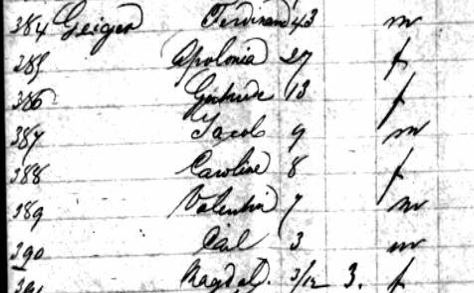 384 Geiger Ferdinand 43 m
385 Apolonia 27 f
386 Gertrude 13 f
387 Jacob 9 m
388 Caroline 8 f
389 Valentin 7 m
390 Carl 3 m
391 Magdal. 3/12 3. f